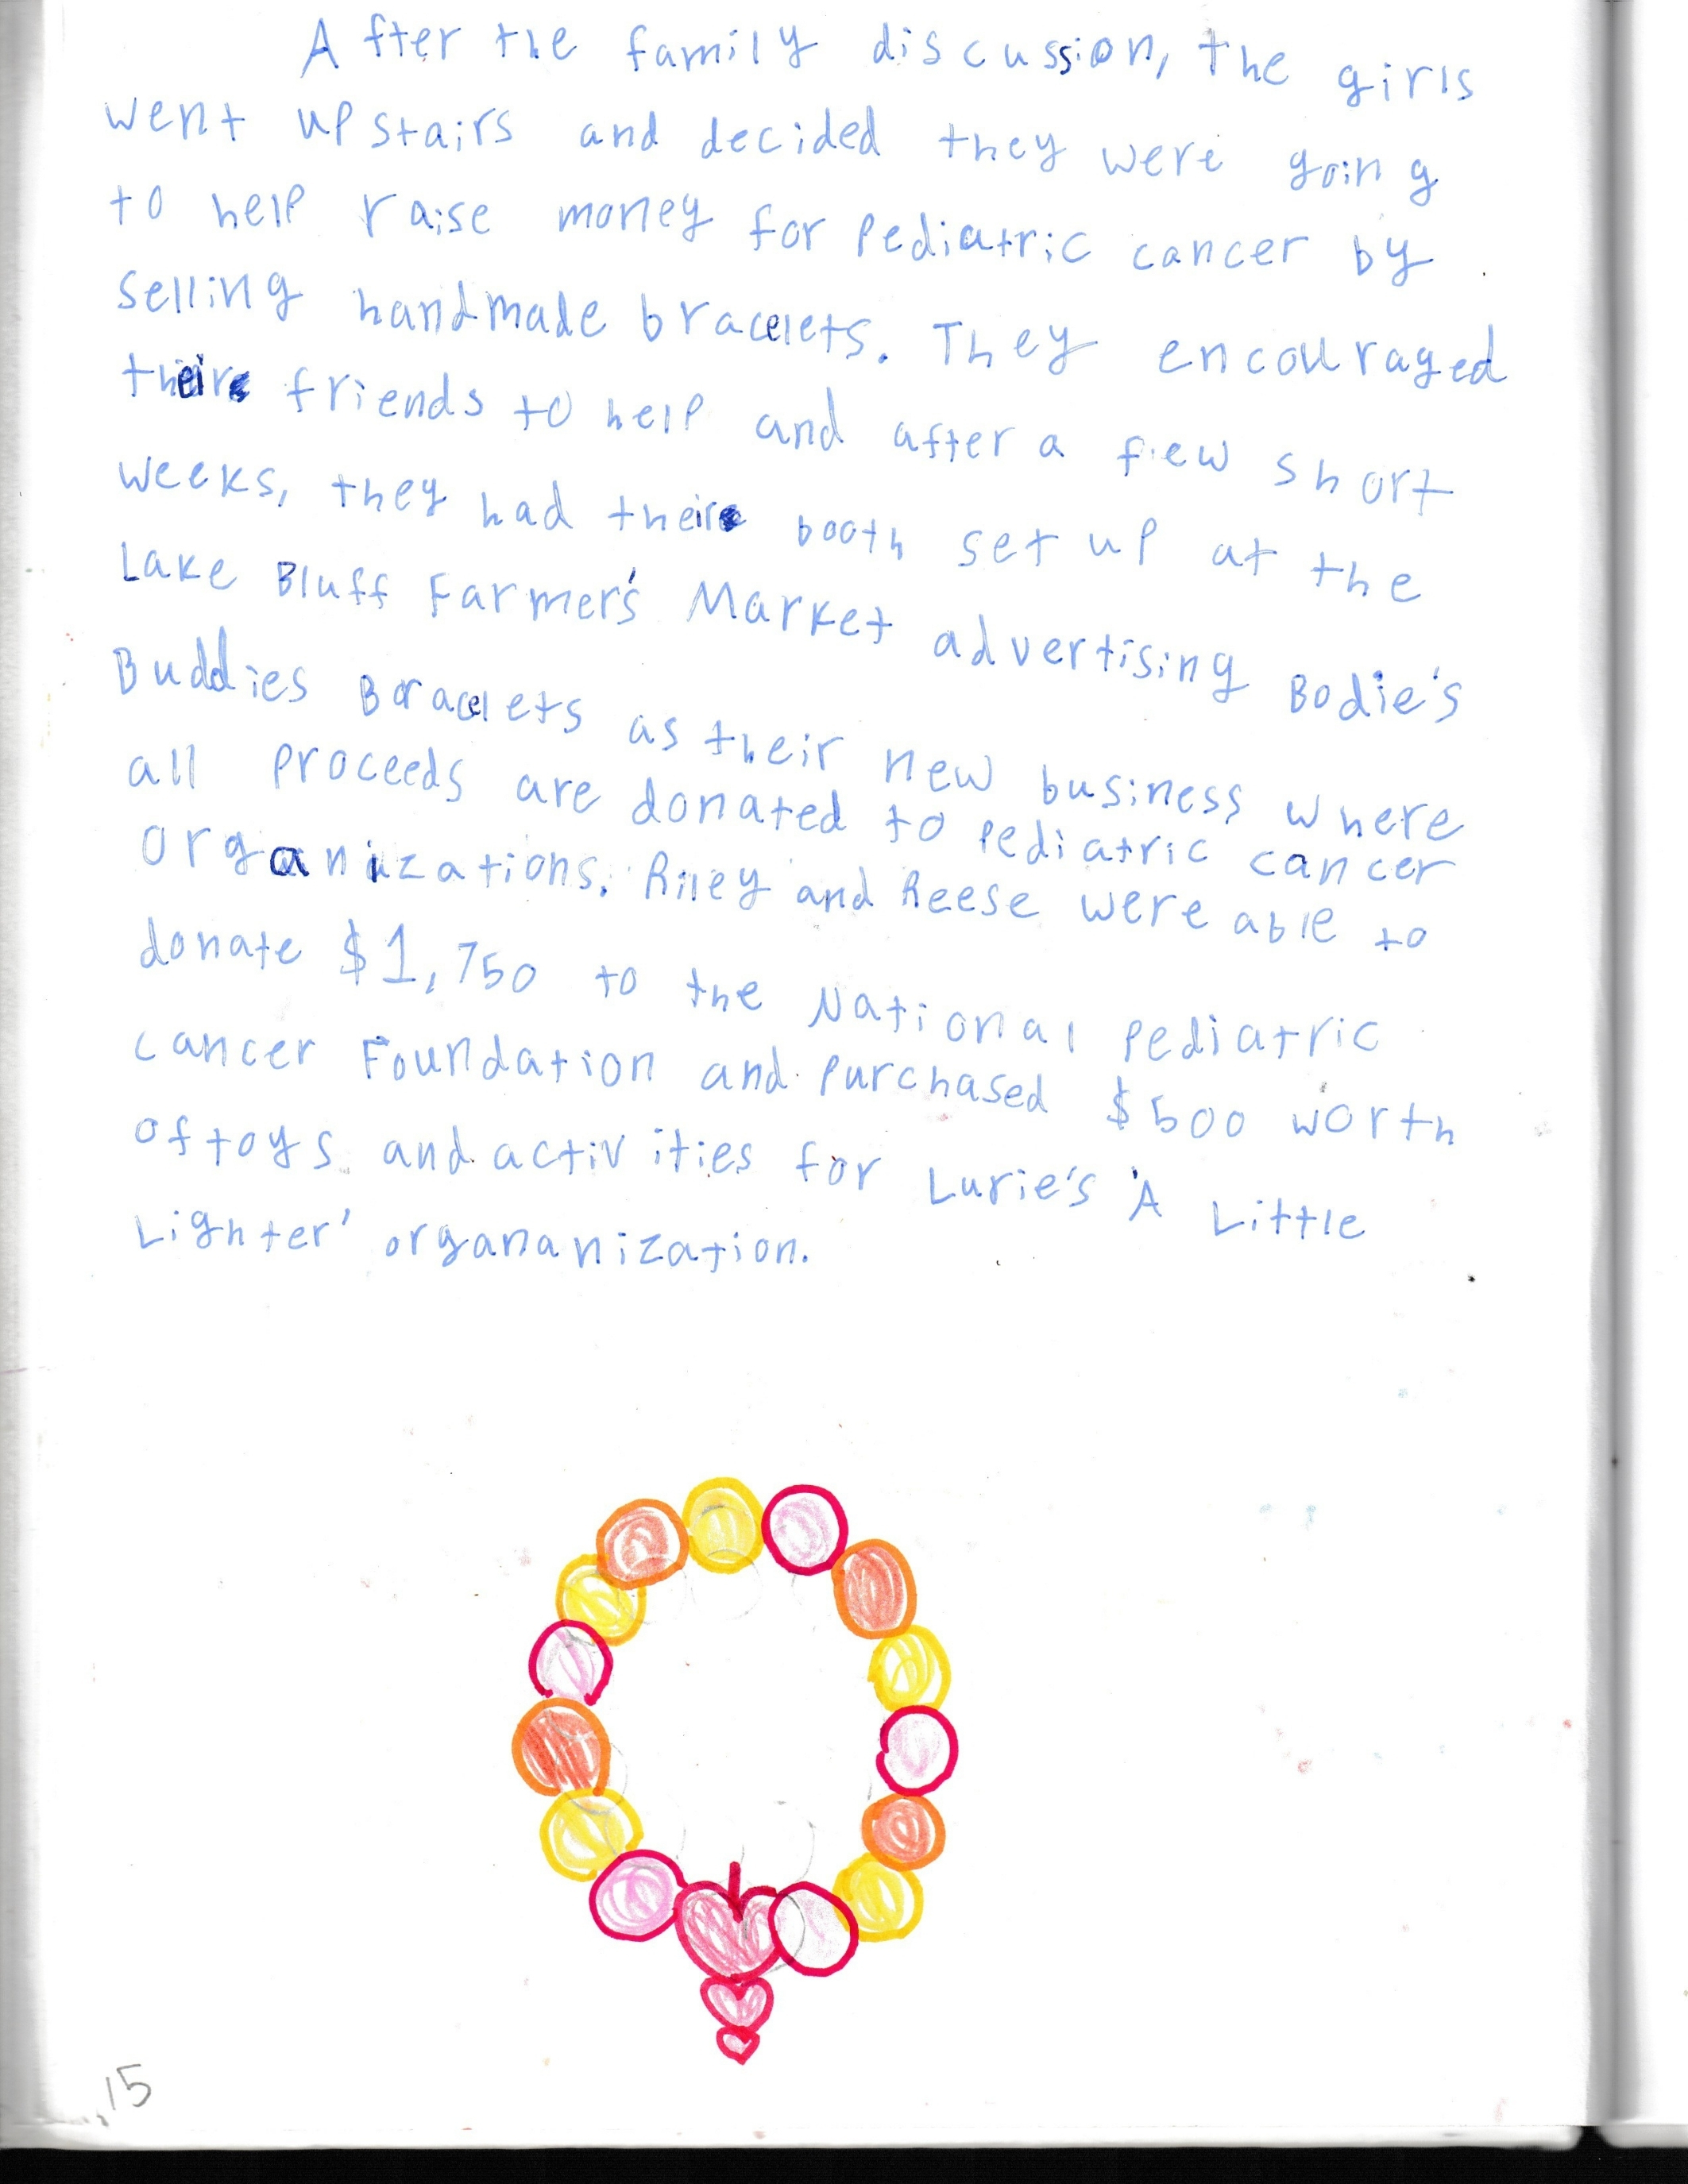 After the family discussion, the girls
went upstairs and decided they were going
to help raise money for Pediatric cancer by
selling handmade bracelets. They encouraged
their friends to help and after a few short
weeks, they had their booth set up at the
Lake Bluff Farmer's Market advertising Bodie's
Buddies Bracelets as their new business where
all proceeds are donated to Pediatric cancer
organizations. Riley and Reese were able to
donate $1,750 to the National Pediatric
Cancer Foundation and purchased $500 worth
of toys and activities for Lurie's 'A Little
Lighter' organanization.
15